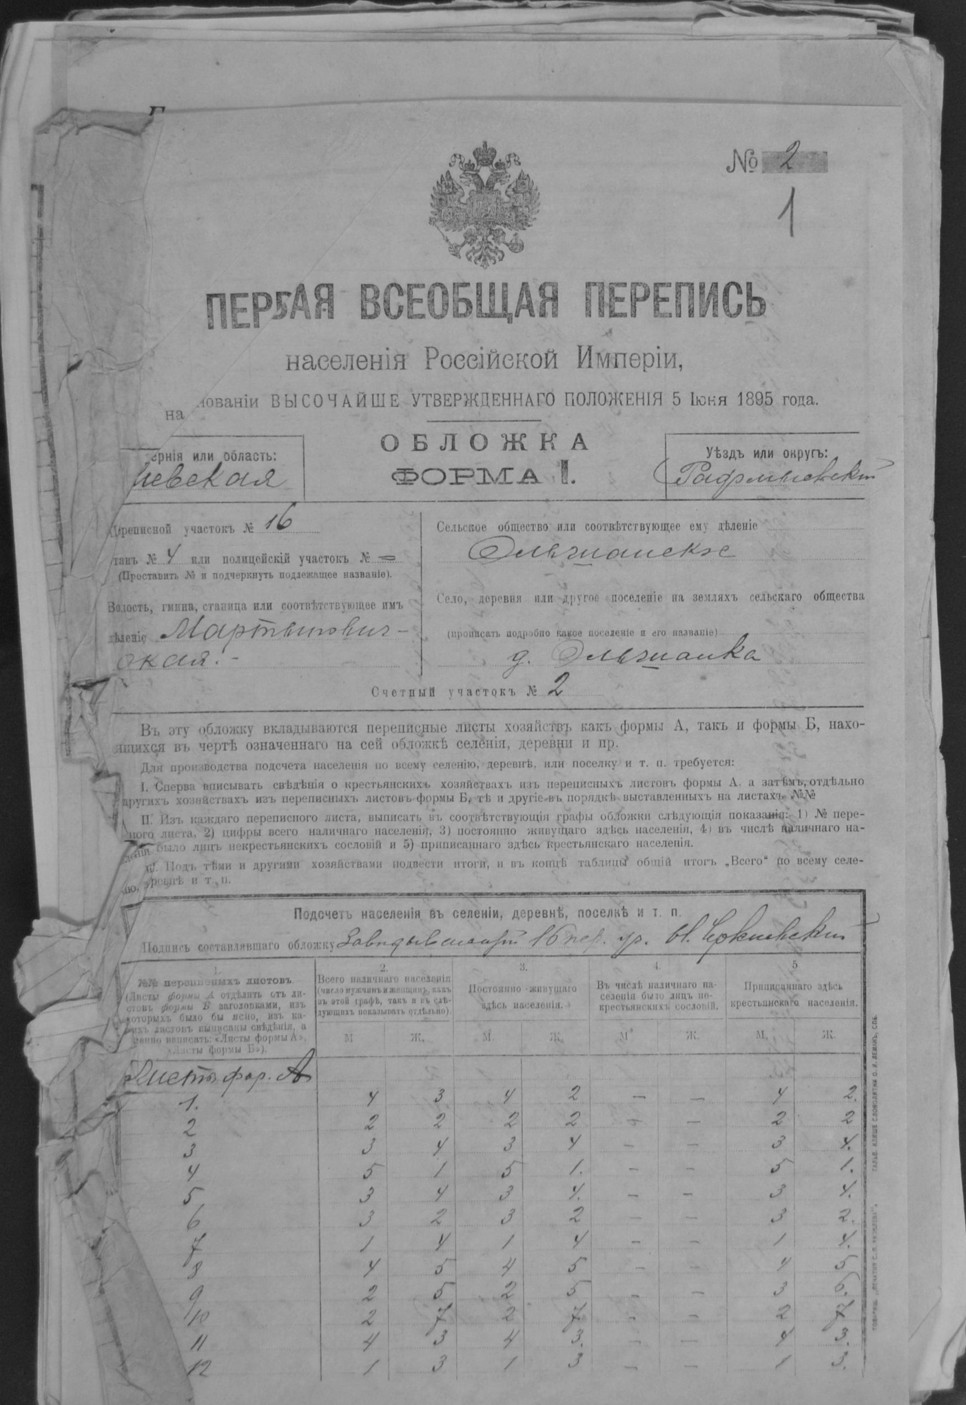 № 2
1
ПЕРВАЯ ВСЕОБЩАЯ ПЕРЕПИСЬ
населенія Россійской Имперіи,
на нованіи ВЫСОЧАЙШЕ УТВЕРЖДЕННАГО ПОЛОЖЕНІЯ 5 Іюня 1895 года.
ОБЛОЖКА
ФОРМА I.
ернія или область:
іевская
Уѣздъ или округъ:
Радомысльскій
Переписной участокъ № 16
танъ № 4 или полицейскій участокъ № —
(Проставить № и подчеркнуть подлежащее названіе).
Волость, гмина, станица или соотвѣтствующее имъ
дѣленіе Мартынович-
ская.-
Сельское общество или соотвѣтствующее ему дѣленіе
Ольшанское
Село, деревня или другое поселеніе на земляхъ сельскаго общества
(прописать подробно какое поселеніе и его названіе)
д. Ольшанка
Счетный участокъ № 2
Въ эту обложку вкладываются переписные листы хозяйствъ какъ формы А, такъ и формы Б, нахо-
ящихся въ чертѣ означеннаго на сей обложкѣ селенія, деревни и пр.
Для производства подсчета населенія по всему селенію, деревнѣ, или поселку и т. п. требуется:
I. Сперва вписывать свѣдѣнія о крестьянскихъ хозяйствахъ изъ переписныхъ листовъ формы А. а затѣмъ, отдѣльно
другихъ хозяйствахъ изъ переписныхъ листовъ формы Б, тѣ и другіе въ порядкѣ выставленныхъ на листахъ №№
II. Изъ каждаго переписного листа, выписать въ соотвѣтствующія графы обложки слѣдующія показанія: 1) № пере-
ного листа, 2) цифры всего наличнаго населенія, 3) постоянно живущаго здѣсь населенія, 4) въ числѣ наличнаго на-
селенія было лицъ некрестьянскихъ сословій и 5) приписаннаго здѣсь крестьянскаго населенія.
Подъ тѣми и другими хозяйствами подвести итоги, и въ концѣ таблицы общій итогъ „Всего“ по всему селе-
ревнѣ и т. п.
Подсчетъ населенія въ селеніи, деревнѣ, поселкѣ и т. п.
Подпись составлявшаго обложку Завѣдывающій 16 пер. уч.
1.
№№ переписныхъ листовъ.
(Листы формы А отдѣлять отъ ли-
стовъ формы Б заголовками, изъ
которыхъ было бы ясно, изъ ка-
ихъ листовъ выписаны свѣдѣнія, а
менно написать: «Листы формы А»,
«Листы формы Б»).
2.
Всего наличнаго населенія
(число мужчинъ и женщинъ, какъ
въ этой графѣ, такъ и въ слѣ-
дующихъ показывать отдѣльно).
3.
Постоянно живущаго
здѣсь населенія.
4.
Въ числѣ наличнаго на-
селенія было лицъ не-
крестьянскихъ сословій.
5
Приписаннаго здѣсь
крестьянскаго населенія.
М Ж. М. Ж. М Ж. М. Ж.
Листы фор. А
1. 4 3 4 2 — — 4 2
2 2 2 2 2 — — 2 2
3 3 4 3 4 — — 3 4
4 5 1 5 1. — — 5 1.
5 3 4 3 4. — — 3 4.
6 3 2 3 2 — — 3 2.
7 1 4 1 4 — — 1 4.
8 4 5 4 5 — — 4 5.
9 2 5 2 5 — — 3 5
10 2 7 2 7 — — 2 7.
11 4 3 4 3. — — 4 3.
12 1 3 1 3. — — 1 3.